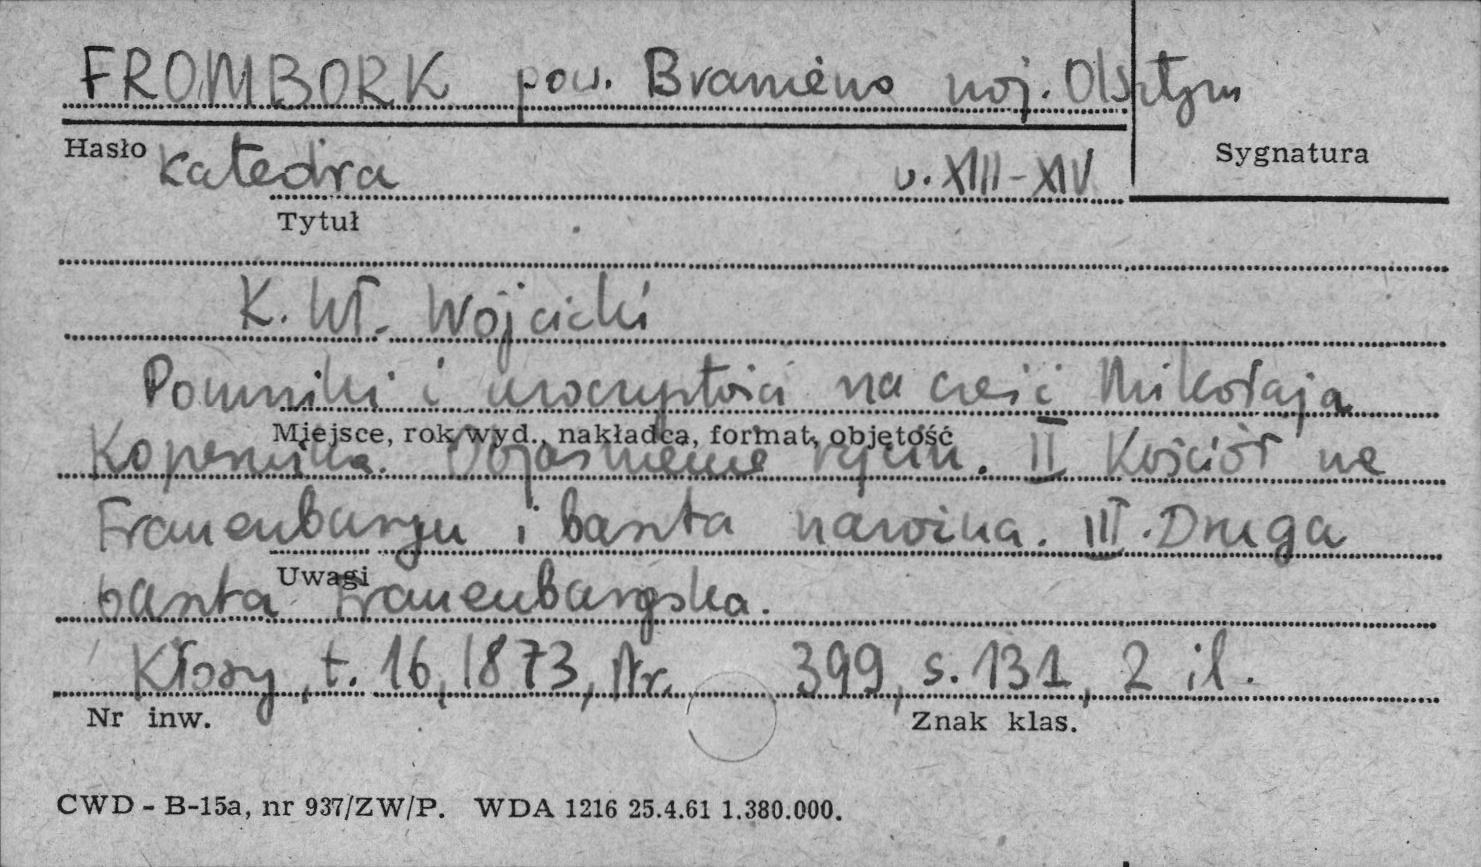 FROMBORK pow. Braniewo woj. Olsztyn
Hasło
Sygnatura
Katedra w. XIII-XIV
Tytuł
K. Wł. Wójcicki
Pomniki i uroczystości na cześć Mikołaja
Miejsce, rok wyd., nakładca, format, objętość
Kopernika. Objaśnienie rycin. II Kościół we
Frauenburgu i baszta narożna. III. Druga
Uwagi
baszta Frauenburgska.
Kłosy, t. 16, 1873, Nr. 399, s. 131, 2 il.
Nr inw.
Znak klas.
CWD - B-15a, nr 937/ZW/P. WDA 1216 25.4.61 1.380.000.